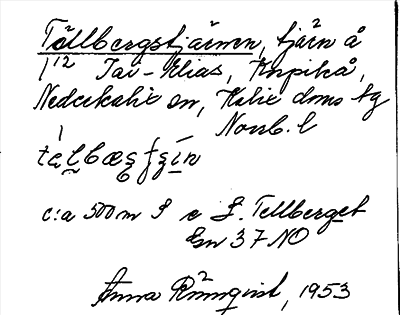 Tällbergstjärnen, tjärn å
1'12 Jai-Elias, Korpikå,
Nederkalix sn, Kalix doms tg
Norrb. l
c:a 500 m S e L. Tellberget
Gsn 37 NO
Anna Rönnqvist, 1953